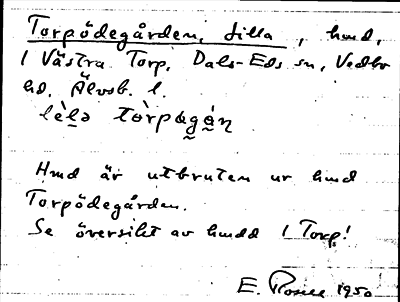 Torpödegården, Lilla, hmd,
i Västra Torp, Dals-Eds sn, Vedbo
hd. Älvsb. l.
Hmd är utbruten ur hmd
Torpödegården.
Se översikt av hmdd i Torp!
E. 1950